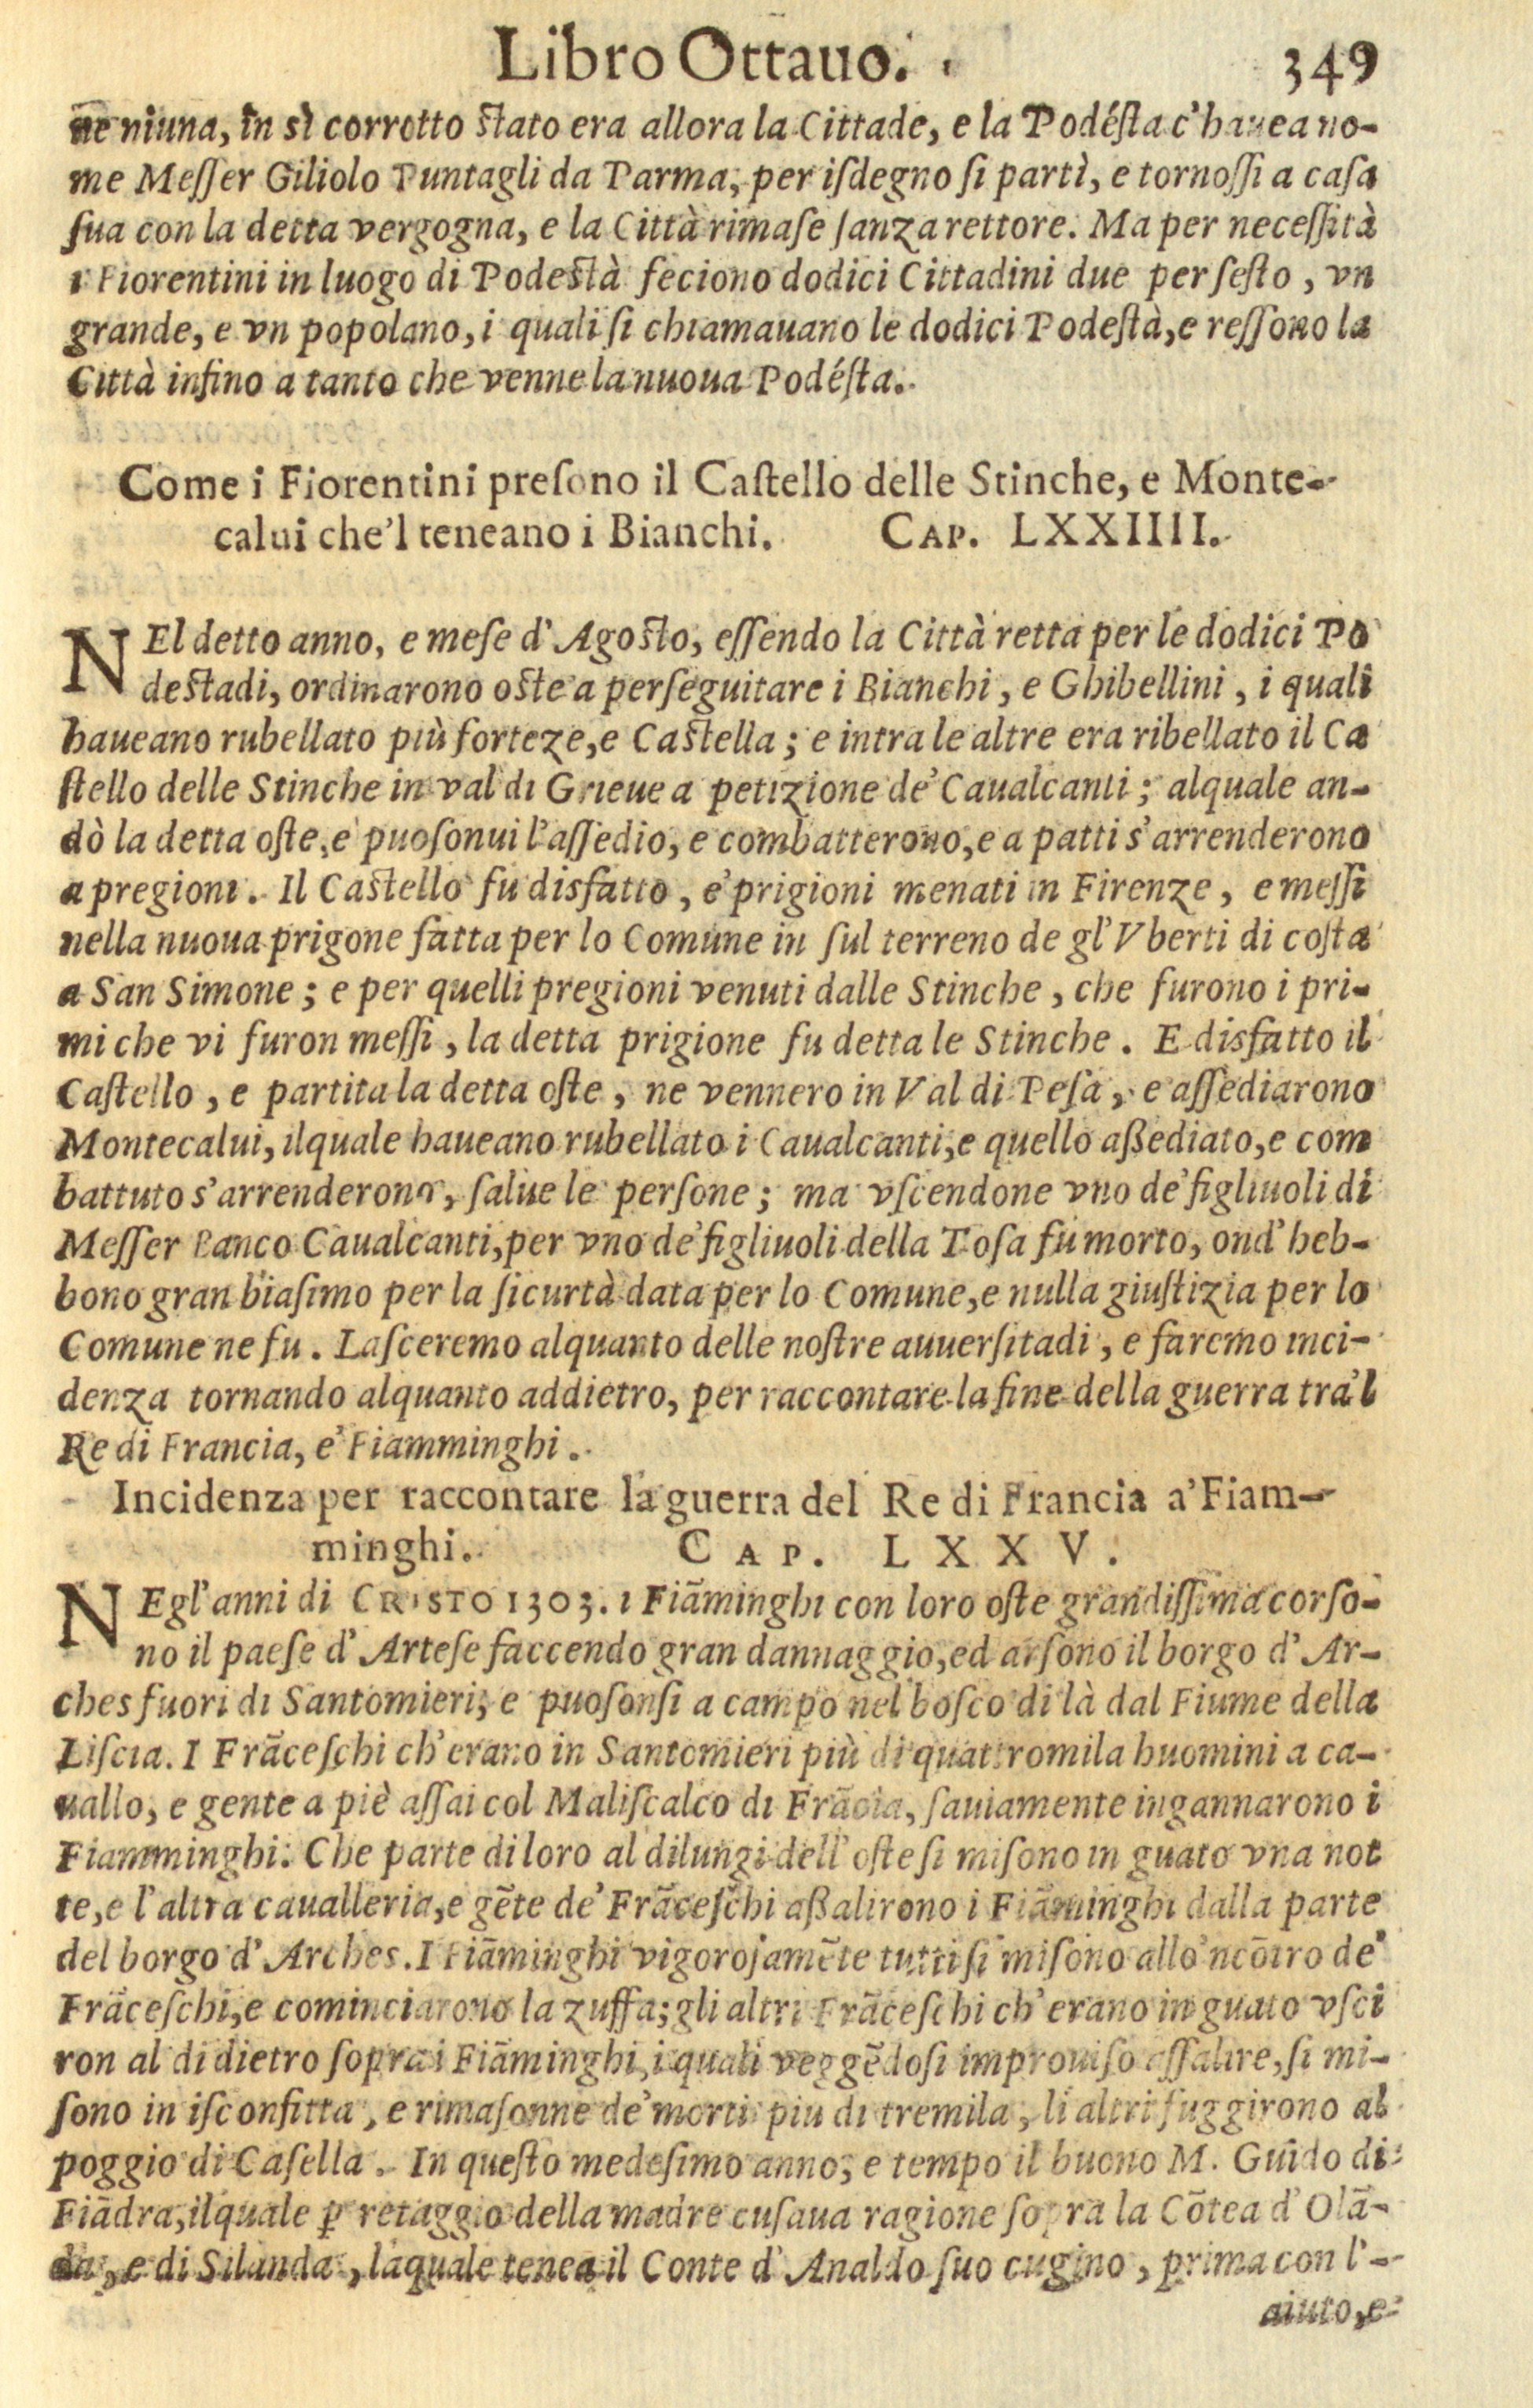 Libro Ottauo. 349
ne niuna, in sì corrotto ſtato era allora la Cittade, e la Podéſta c'hauea no-
me Meſſer Giliolo Puntagli da Parma, per iſdegno ſi partì, e tornoſſi a caſa
ſua con la detta vergogna, e la Città rimaſe ſanza rettore. Ma per neceſſità
i Fiorentini in luogo di Podeſtà feciono dodici Cittadini due per ſeſto, vn
grande, e vn popolano, i quali ſi chiamauano le dodici Podeſtà, e reſſono la
Città infino a tanto che venne la nuoua Podéſta.
Come i Fiorentini preſono il Caſtello delle Stinche, e Monte-
calui che'l teneano i Bianchi. CAP. LXXIIII.
NEl detto anno, e meſe d'Agoſto, eſſendo la Città retta per le dodici Po
deſtadi, ordinarono oſte a perſeguitare i Bianchi, e Ghibellini, i quali
haueano rubellato più forteze, e Caſtella; e intra le altre era ribellato il Ca
ſtello delle Stinche in val di Grieue a petizione de' Caualcanti; alquale an-
dò la detta oſte, e puoſonui l'aſſedio, e combatterono, e a patti s'arrenderono
a pregioni. Il Caſtello fu disfatto, e' prigioni menati in Firenze, e meſſi
nella nuoua prigone fatta per lo Comune in ſul terreno de gl'Vberti di coſta
a San Simone; e per quelli pregioni venuti dalle Stinche, che furono i pri-
mi che vi furon meſſi, la detta prigione fu detta le Stinche. E disfatto il
Caſtello, e partita la detta oſte, ne vennero in Val di Peſa, e aſſediarono
Montecalui, ilquale haueano rubellato i Caualcanti, e quello aßediato, e com
battuto s'arrenderono, ſalue le perſone; ma vſcendone vno de' figliuoli di
Meſſer Banco Caualcanti, per vno de' figliuoli della Toſa fu morto, ond'heb-
bono gran biaſimo per la ſicurtà data per lo Comune, e nulla giuſtizia per lo
Comune ne fu. Laſceremo alquanto delle noſtre auuerſitadi, e faremo inci-
denza tornando alquanto addietro, per raccontare la fine della guerra tra'l
Re di Francia, e' Fiamminghi.
Incidenza per raccontare la guerra del Re di Francia a' Fiam-
minghi. CAP. LXXV.
NEgl'anni di CRISTO 1303. i Fiāminghi con loro oſte grandiſſima corſo-
no il paeſe d'Arteſe faccendo gran dannaggio, ed arſono il borgo d'Ar-
ches fuori di Santomieri, e puoſonſi a campo nel boſco di là dal Fiume della
Liſcia. I Frāceſchi ch'erano in Santomieri più di quattromila huomini a ca-
uallo, e gente a piè aſſai col Maliſcalco di Frācia, ſauiamente ingannarono i
Fiamminghi. Che parte di loro al dilungi dell'oſte ſi miſono in guato vna not
te, e l'altra caualleria, e gēte de' Frāceſchi aßalirono i Fiāminghi dalla parte
del borgo d'Arches. I Fiāminghi vigoroſamēte tutti ſi miſono allo'ncōtro de'
Frāceſchi, e cominciarono la zuffa; gli altri Frāceſchi ch'erano in guato vſci
ron al di dietro ſopra i Fiāminghi, i quali veggēdoſi improuiſo aſſalire, ſi mi-
ſono in iſconfitta, e rimaſonne de' morti piu di tremila, li altri fuggirono al
poggio di Caſella. In queſto medeſimo anno, e tempo il buono M. Guido di
Fiādra, ilquale ꝑ retaggio della madre cuſaua ragione ſopra la Cōtea d'Olā-
da, e di Silanda, laquale tenea il Conte d'Analdo ſuo cugino, prima con l'-
aiuto, e